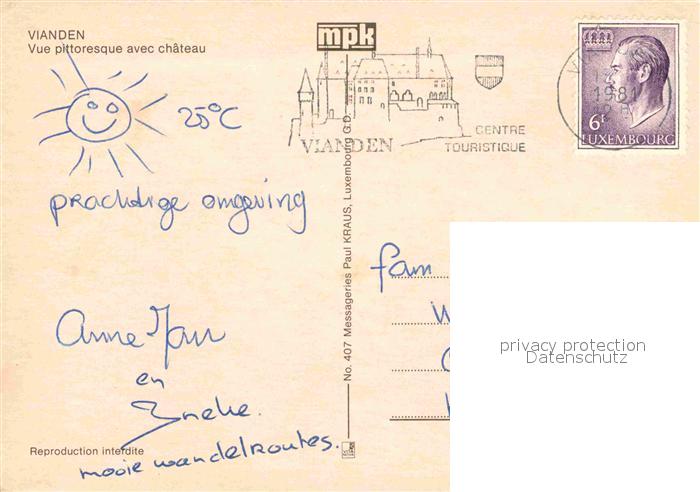 VIANDEN
Vue pittoresque avec château
mpk
VIANDEN
CENTRE
TOURISTIQUE
1981
6F
LUXEMBOURG
25°C
prachtige omgeving
Anne Jan
en
Ineke.
mooie wandelroutes.
Reproduction interdite
No. 407 Messageries Paul KRAUS, Luxembourg G.D.
fam
privacy protection
Datenschutz